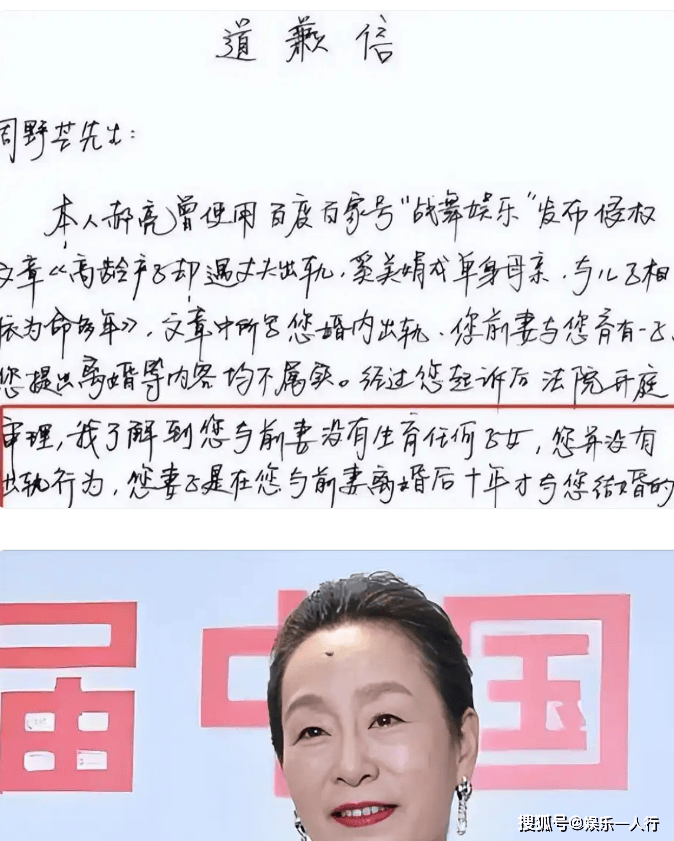 道歉信
周野芒先生：
本人郝亮曾使用百度百家号“战舞娱乐”发布侵权
文章《高龄产子却遇丈夫出轨，奚美娟成单身母亲，与儿子相
依为命多年》，文章中所写您婚内出轨、您前妻与您育有一子、
您提出离婚等内容均不属实。经过您起诉后法院开庭
审理，我了解到您与前妻没有生育任何子女，您并没有
出轨行为，您妻子是在您与前妻离婚后十年才与您结婚的
届中国
搜狐号@娱乐一人行